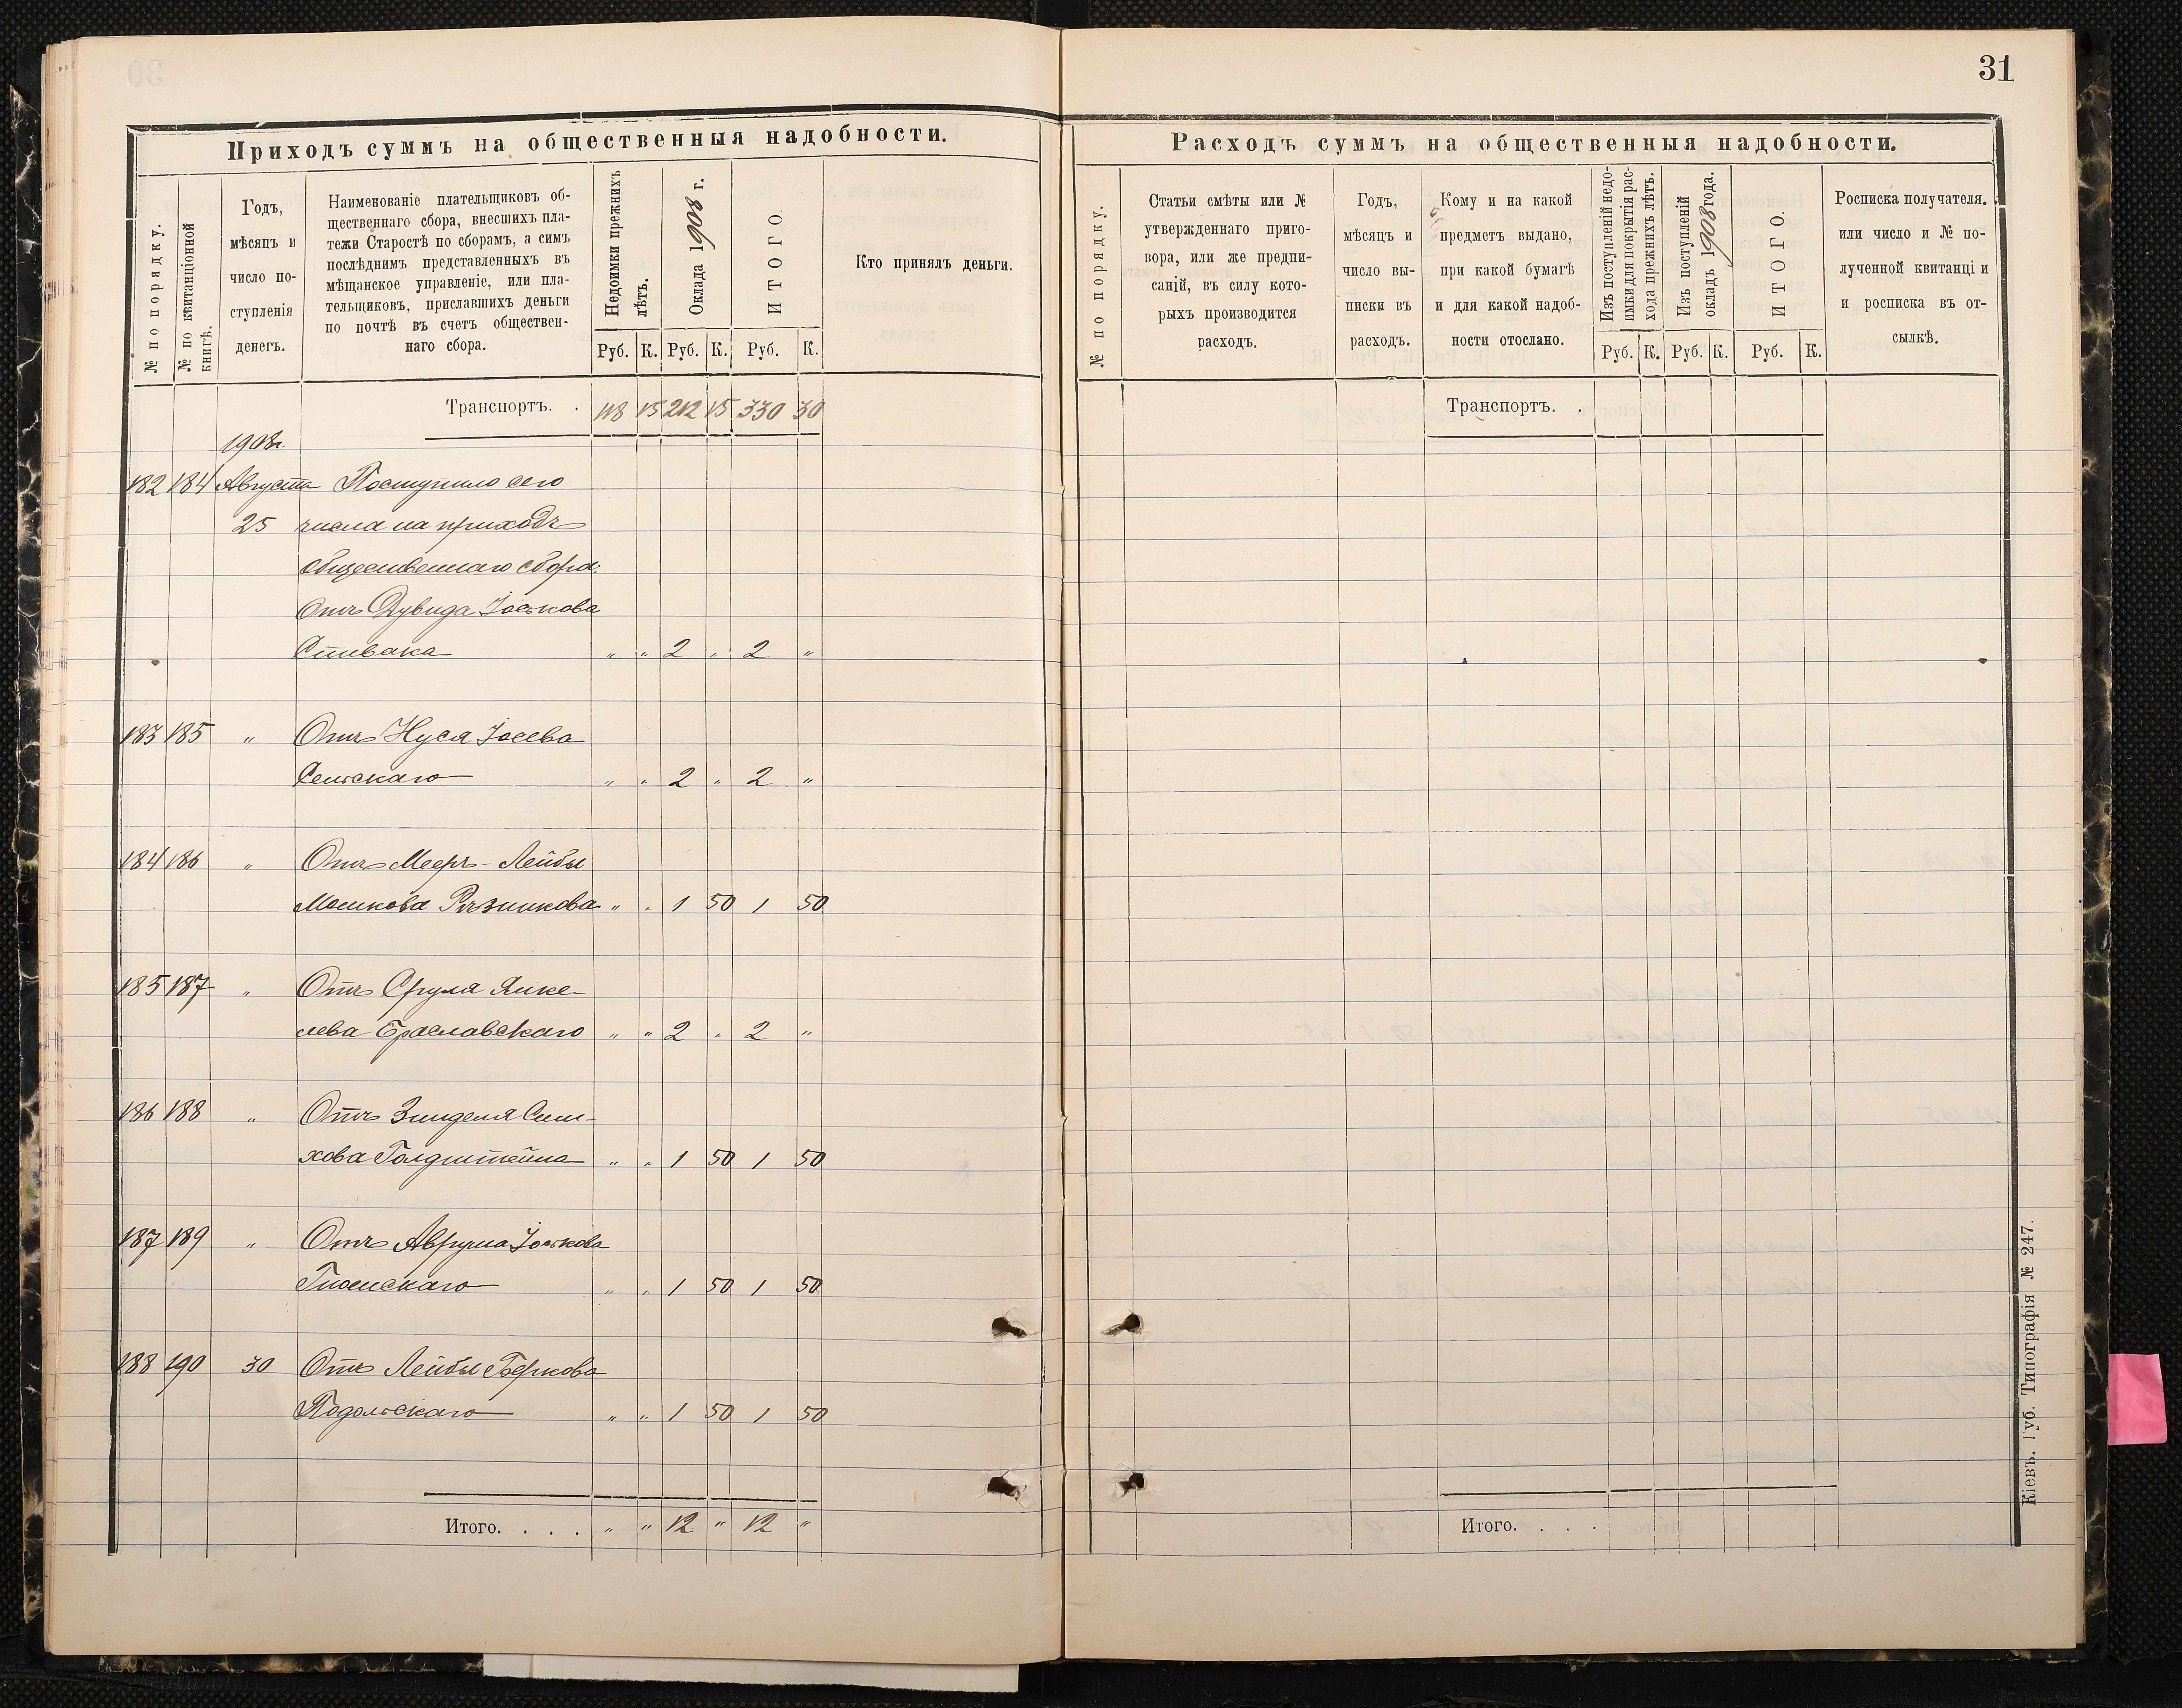 31
Приходъ суммъ на общественныя надобности.
№ по порядку.
№ по квитанціонной книгѣ.
Годъ,
мѣсяцъ и
число по-
ступленія
денегъ.
Наименованіе плательщиковъ об-
щественнаго сбора, внесшихъ пла-
тежи Старостѣ по сборамъ, а симъ
послѣднимъ представленныхъ въ
мѣщанское управленіе, или пла-
тельщиковъ, приславшихъ деньги
по почтѣ въ счетъ обществен-
наго сбора.
Недоимки прежнихъ лѣтъ.
Оклада 1908 г.
ИТОГО.
Кто принялъ деньги.
Руб. К. Руб. К. Руб. К.
Транспортъ. . 118 15 212 15 330 30
1908г.
182 184 Августа Поступило сего
25 числа на приходъ
общественнаго сбора:
Отъ Дувида Іоськова
Спивака " " 2 " 2 "
183 185 " Отъ Нуся Іосева
Сельскаго " " 2 " 2 "
184 186 " Отъ Мееръ-Лейбы
Мошкова Рѣзникова " " 1 50 1 50
185 187 " Отъ Срула Янке-
лева Браславскаго " " 2 " 2 "
186 188 " Отъ Зинделя Сим-
хова Голдштейна " " 1 50 1 50
187 189 " Отъ Аврума Іоськова
" " 1 50 1 50
188 190 30 Отъ Лейбы Беркова
Подольскаго " " 1 50 1 50
Итого. . . . " " 12 " 12 "
Расходъ суммъ на общественныя надобности.
№ по порядку.
Статьи смѣты или №
утвержденнаго приго-
вора, или же предпи-
саній, въ силу кото-
рыхъ производится
расходъ.
Годъ,
мѣсяцъ и
число вы-
писки въ
расходъ.
Кому и на какой
предметъ выдано,
при какой бумагѣ
и для какой надоб-
ности отослано.
Изъ поступленій недо-
имки для покрытія рас-
хода прежнихъ лѣтъ.
Изъ поступленій
окладъ 1908 года.
ИТОГО.
Росписка получателя.
или число и № по-
лученной квитанці и
и росписка въ от-
сылкѣ.
Руб. К. Руб. К. Руб. К.
Транспортъ. .
Итого. . . .
Кіевъ. Губ. Типографія № 247.